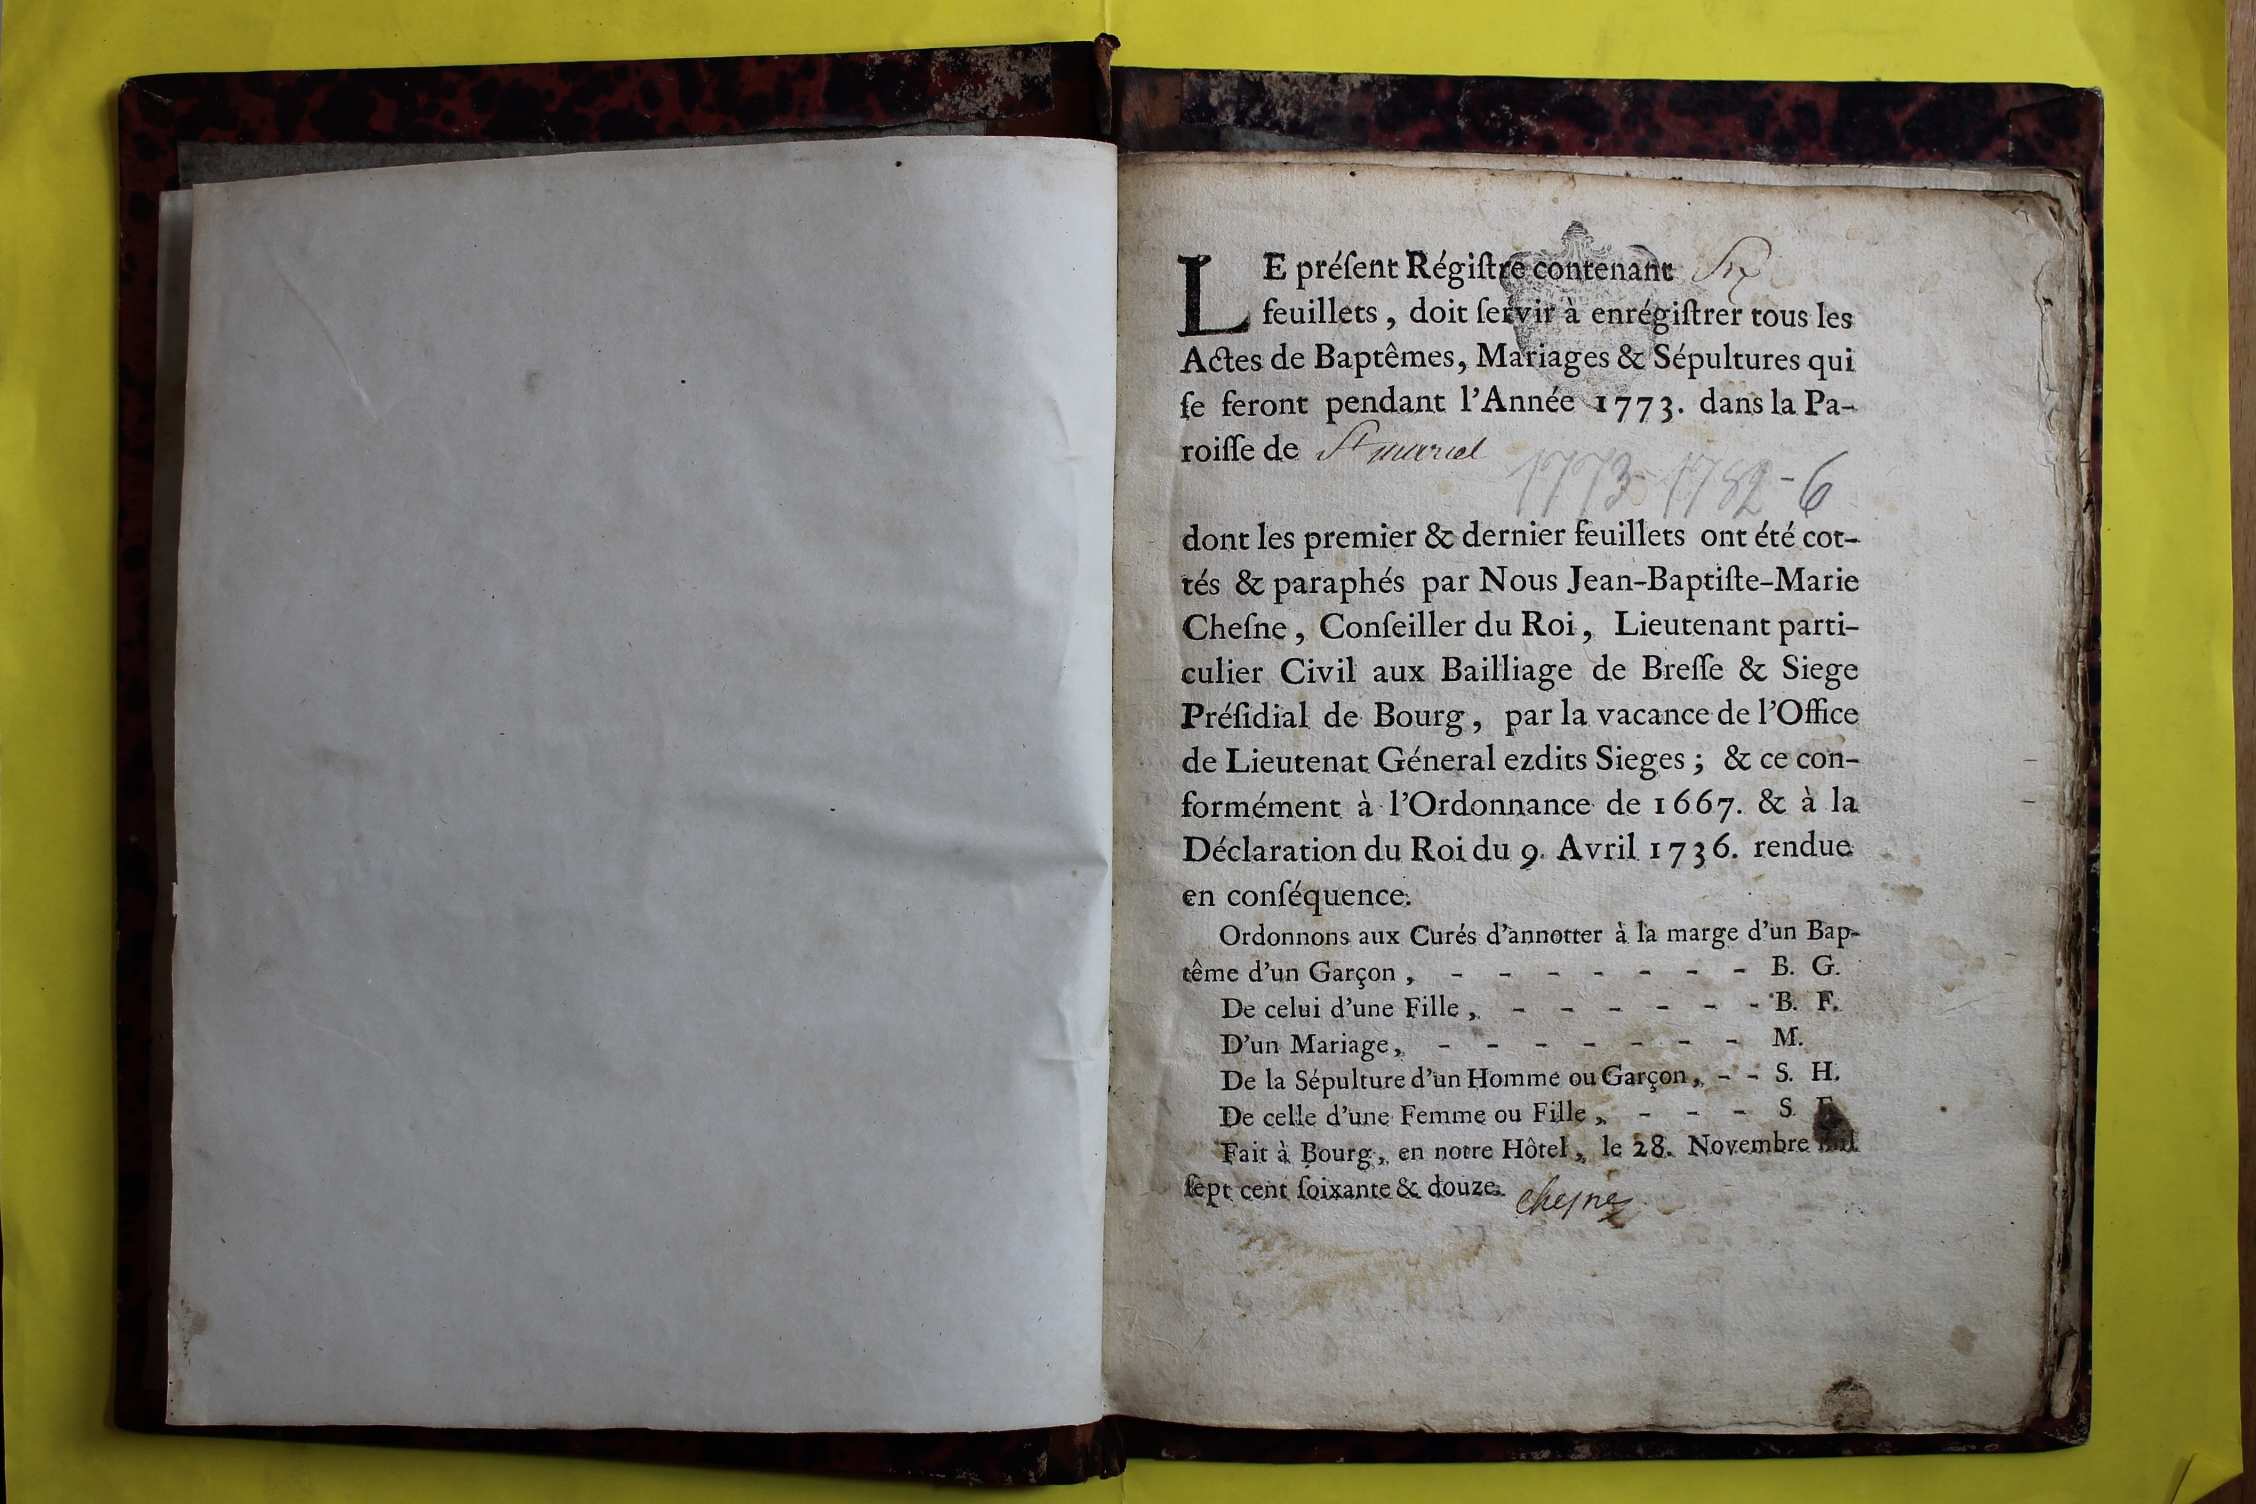 LE préſent Régiſtre contenant Six
feuillets, doit ſervir à enrégiſtrer tous les
Actes de Baptêmes, Mariages & Sépultures qui
ſe feront pendant l'Année 1773. dans la Pa-
roiſſe de St marcel
1773-1782-6
dont les premier & dernier feuillets ont été cot-
tés & paraphés par Nous Jean-Baptiſte-Marie
Cheſne, Conſeiller du Roi, Lieutenant parti-
culier Civil aux Bailliage de Breſſe & Siege
Préſidial de Bourg, par la vacance de l'Office
de Lieutenat Géneral ezdits Sieges; & ce con-
formément à l'Ordonnance de 1667. & à la
Déclaration du Roi du 9. Avril 1736. rendue
en conſéquence.
Ordonnons aux Curés d'annotter à la marge d'un Bap-
tême d'un Garçon, - - - - - - - B. G.
De celui d'une Fille, - - - - - - B. F.
D'un Mariage, - - - - - - - M.
De la Sépulture d'un Homme ou Garçon, - - S. H.
De celle d'une Femme ou Fille, - - - S. F.
Fait à Bourg, en notre Hôtel, le 28. Novembre mil
ſept cent ſoixante & douze. Cheſne